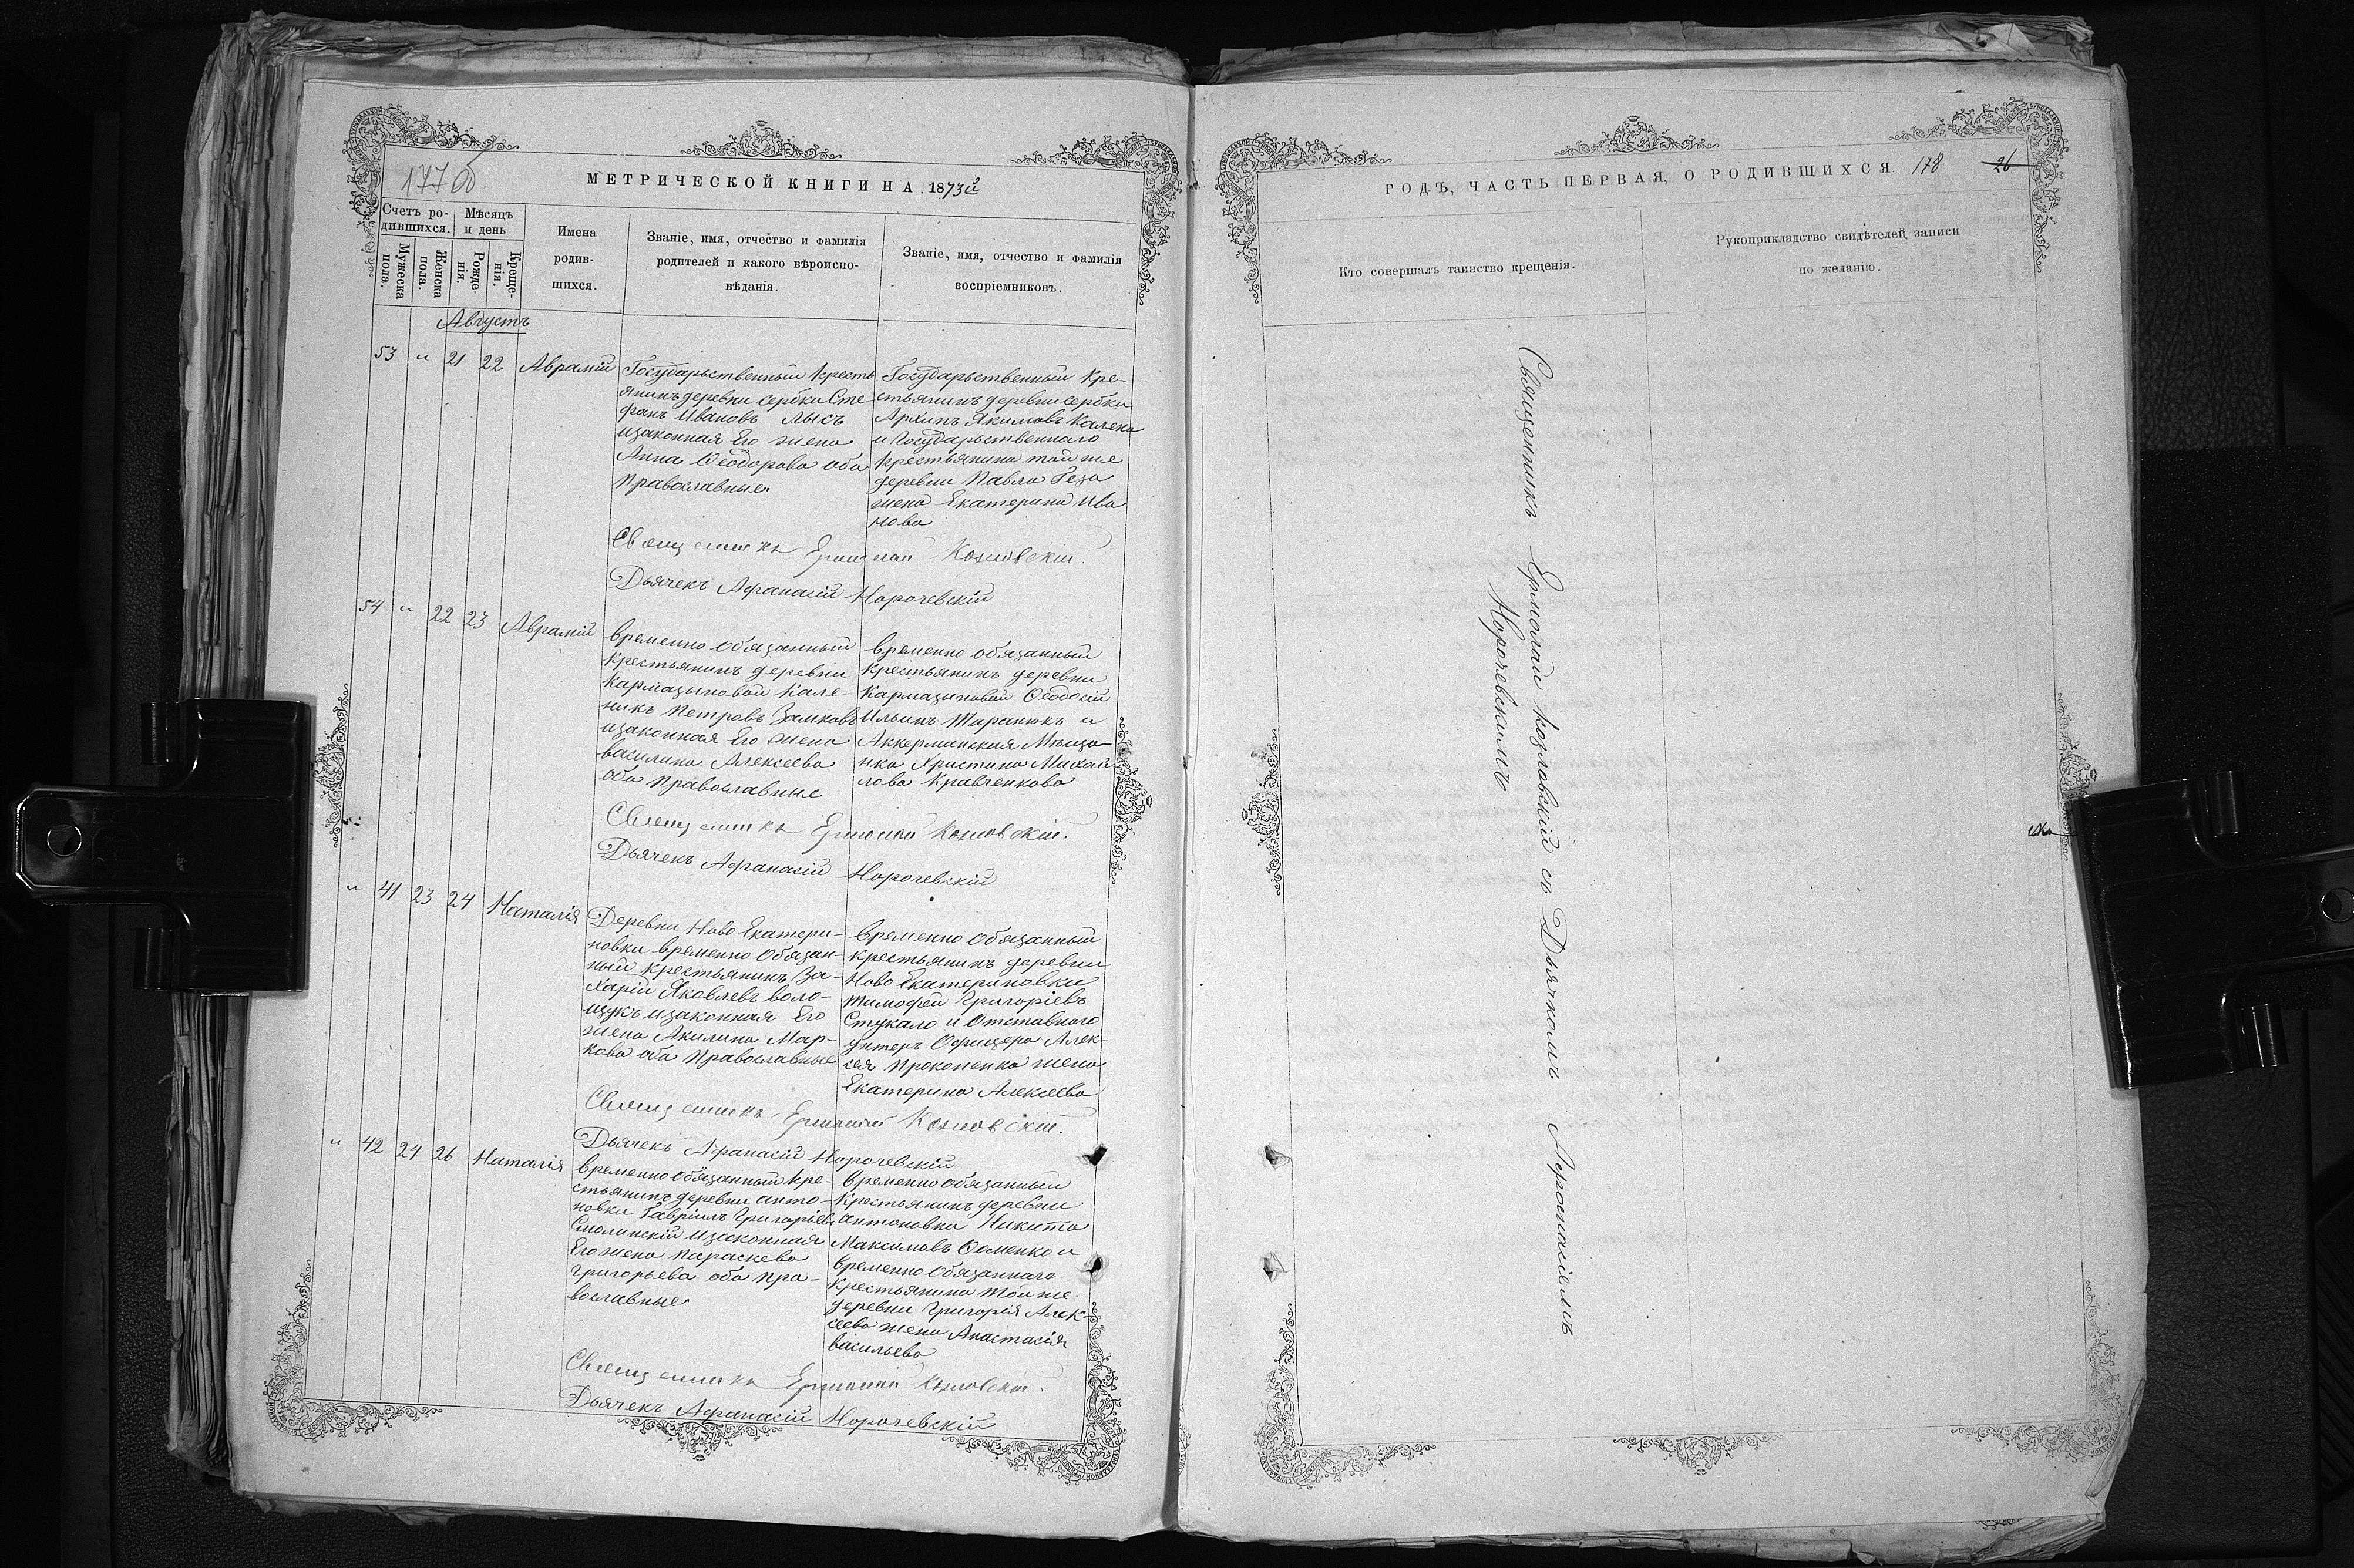 177 об
МЕТРИЧЕСКОЙ КНИГИ НА 1873й
Счетъ ро-
дившихся.
Мѣсяцъ
и день
Мужеска
пола.
Женска
пола.
Рожде-
нія.
Креще-
нія.
Имена
родив-
шихся.
Званіе, имя, отчество и фамилія
родителей и какого вѣроиспо-
вѣданія.
Званіе, имя, отчество и фамилія
воспріемниковъ.
Августъ
53 " 21 22 Аврамій
Государьственный кресть
янинъ деревни сербки Сте-
фанъ Ивановъ Лысъ
изаконная Его жена
Анна Ѳеодорова оба
Православные
Государьственный Кре-
стьянинъ деревни сербки
Архипъ Якимовъ Калека
и Государьственнаго
Крестьянина той же
деревни Павла Геза
жена Екатерина Ива
нова
Священникъ Ермолай Козловскій.
Дьячекъ Афанасій Норочевскій
54 " 22 23 Аврамій
временно обязанный
крестьянинъ деревни
Кармазыновой Кале-
никъ Петровъ Замковъ
изаконная Его жена
василина Алексеева
оба Православные
временно обязанный
крестьянинъ деревни
Кармазыновой Ѳеодосій
Ильинъ Таранюкъ и
Аккерманская Мѣща-
нка Христина Михай-
лова Кравченкова
Священникъ Ермолай Козловскій.
Дьячекъ Афанасій Норочевскій
" 41 23 24 Наталія
Деревни Ново Екатери-
новки временно Обязан-
ный крестьянинъ За-
харій Яковлевъ воло-
щукъ изаконная Его
жена Акилина Мар-
кова оба Православные
временно Обязанный
крестьянинъ деревни
Ново Екатериновки
Тимофей Григоріевъ
Стукало и Отставнаго
Унтеръ Офицера Алек-
сея Прокопенка жена
Екатерина Алексеева
Священникъ Ермолай Козловскій.
Дьячекъ Афанасій Норочевскій
" 42 24 26 Наталія
временно Обязанный кре-
стьянинъ деревни анто-
новки Гавріилъ Григоріевъ
Смолинскій изаконная
Его жена параскева
григорьева оба пра-
вославные
временно Обязанный
Крестьянинъ деревни
антоновки Никита
Максимовъ Фоменко и
временно Обязаннаго
крестьянина той же
деревни Григорія Алек-
сеева жена Анастасія
васильева
Священникъ Ермолай Козловскій.
Дьячекъ Афанасій Норочевскій
ГОДЪ, ЧАСТЬ ПЕРВАЯ, О РОДИВШИХСЯ. 178 26
Кто совершалъ таинство крещенія.
Рукоприкладство свидѣтелей записи
по желанію.
Священникъ Ермолай Козловскій съ Дьячкомъ Афанасіемъ
Норочевскимъ